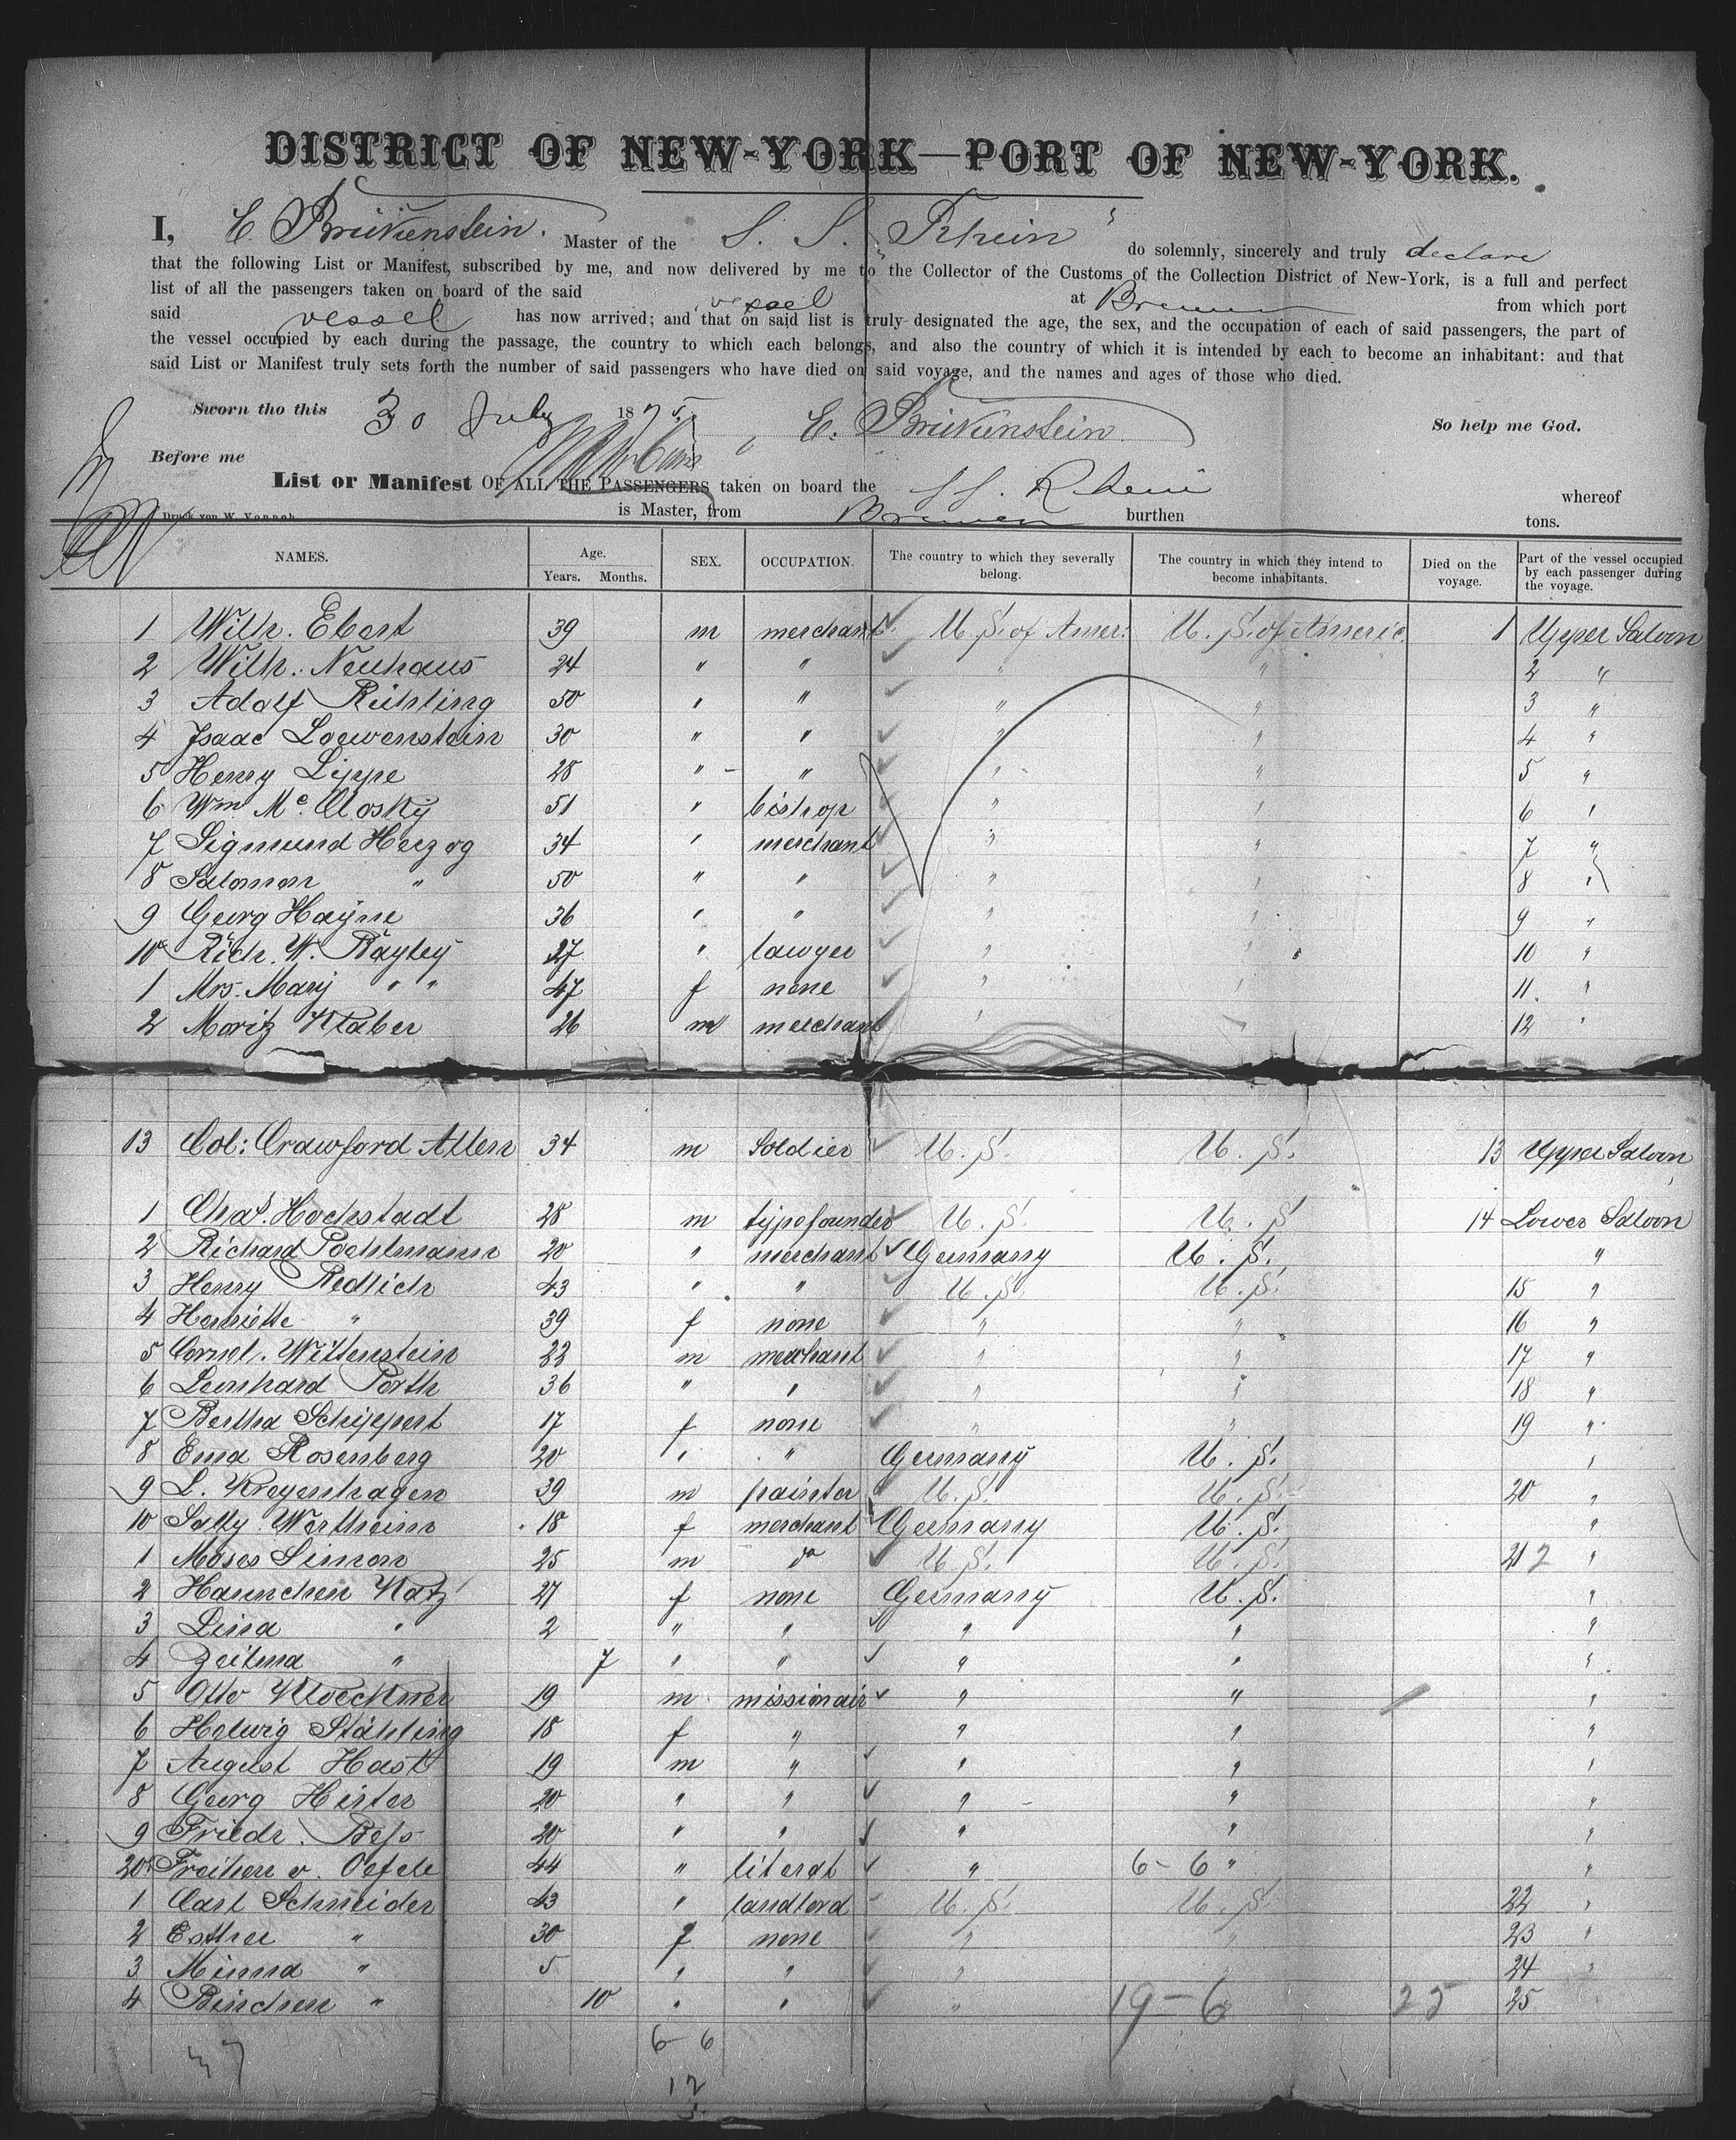 DISTRICT OF NEW-YORK—PORT OF NEW-YORK.
I, Master of the S. S. "Rhein" do solemnly, sincerely and truly declare
that the following List or Manifest, subscribed by me, and now delivered by me to the Collector of the Customs of the Collection District of New-York, is a full and perfect
list of all the passengers taken on board of the said vessel at Bremen from which port
said vessel has now arrived; and that on said list is truly designated the age, the sex, and the occupation of each of said passengers, the part of
the vessel occupied by each during the passage, the country to which each belongs, and also the country of which it is intended by each to become an inhabitant: and that
said List or Manifest truly sets forth the number of said passengers who have died on said voyage, and the names and ages of those who died.
Sworn tho this 30 July 1875. So help me God.
Before me
List or Manifest OF ALL THE PASSENGERS taken on board the SS. Rhein whereof
is Master, from Bremen burthen tons.
NAMES. Age. Years. Months. SEX. OCCUPATION. The country to which they severally belong. The country in which they intend to become inhabitants. Died on the voyage. Part of the vessel occupied by each passenger during the voyage.
1 Wilh. Ebert 39 m merchant U. S. of Amer. U. S. of Americ. 1 Upper Saloon
2 Wilh. Neuhaus 24 " " " " 2 "
3 Adolf Rühling 50 " " " " 3 "
4 Isaac Loewenstein 30 " " " " 4 "
5 Henry Lippe 28 " " " " 5 "
6 Wm Mc Closky 51 " bishop " " 6 "
7 Sigmund Herzog 34 " merchant " " 7 "
8 Salomon " 50 " " " " 8 "
9 Georg Hayne 36 " " " " 9 "
10 Rich. W. Bayley 27 " lawyer " " 10 "
1 Mrs. Mary " " 47 f none " " 11. "
2 Moritz Klaber 26 m merchant " " 12 "
13 Col: Crawford Allen 34 m Soldier U. S. U. S. 13 Upper Saloon
1 Chas. Hochstadt 28 m typefounder U. S. U. S. 14 Lower Saloon
2 Richard Poehlmann 20 " merchant Germany U. S. "
3 Henry Redlich 43 " " U. S. U. S. 15 "
4 Henriette " 39 f none " " 16 "
5 Cornel. Wittenstein 22 m merchant " " 17 "
6 Leonhard Porth 36 " " " " 18 "
7 Bertha Schippert 17 f none " " 19 "
8 Ema Rosenberg 20 " " Germany U. S. "
9 L. Kreyenhagen 39 m painter U. S. U. S. 20 "
10 Sally Wertheim 18 f merchant Germany U. S. "
1 Moses Simon 25 m do U. S. U. S. 21 "
2 Hannchen Katz 27 f none Germany U. S. "
3 Lina " 2 " " " " "
4 " 7 " " " " "
5 Otto Kloeckner 19 m missionair " " "
6 Helwig Stähling 18 f " " " "
7 August Hast 19 m " " " "
8 Georg Hister 20 " " " " "
9 Friedr. 20 " " " " "
20 v. Oefele 44 " literat " 6-6 " "
1 Carl Schneider 43 " landlord U. S. U. S. 22 "
2 Esther " 30 f none " " 23 "
3 Minna " 5 " " " 24 "
4 Binchen " 10 " " " 19-6 25 25 "
6-6
37
12